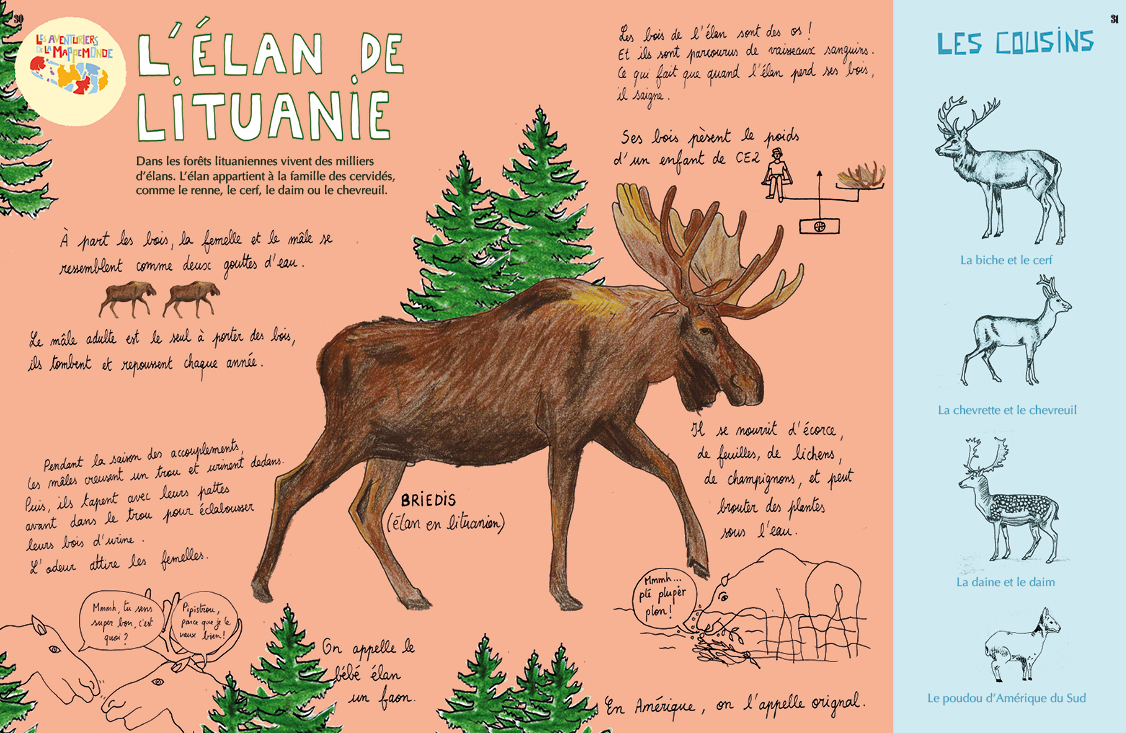 30
LES AVENTURIERS
DE LA MAPPEMONDE
L'ÉLAN DE
LITUANIE
Dans les forêts lituaniennes vivent des milliers
d'élans. L'élan appartient à la famille des cervidés,
comme le renne, le cerf, le daim ou le chevreuil.
À part les bois, la femelle et le mâle se
ressemblent comme deux gouttes d'eau.
Le mâle adulte est le seul à porter des bois,
ils tombent et repoussent chaque année.
Pendant la saison des accouplements,
les mâles creusent un trou et urinent dedans.
Puis, ils tapent avec leurs pattes
avant dans le trou pour éclabousser
leurs bois d'urine.
L'odeur attire les femelles.
Mmmh, tu sens
super bon, c'est
quoi ?
Pipistrou,
parce que je le
vaux bien !
On appelle le
bébé élan
un faon.
Les bois de l'élan sont des os !
Et ils sont parcourus de vaisseaux sanguins.
Ce qui fait que quand l'élan perd ses bois,
il saigne.
Ses bois pèsent le poids
d'un enfant de CE2
BRIEDIS
(élan en lituanien)
Il se nourrit d'écorce,
de feuilles, de lichens,
de champignons, et peut
brouter des plantes
sous l'eau.
Mmmh...
plè plupèr
plon !
En Amérique, on l'appelle orignal.
31
LES COUSINS
La biche et le cerf
La chevrette et le chevreuil
La daine et le daim
Le poudou d'Amérique du Sud